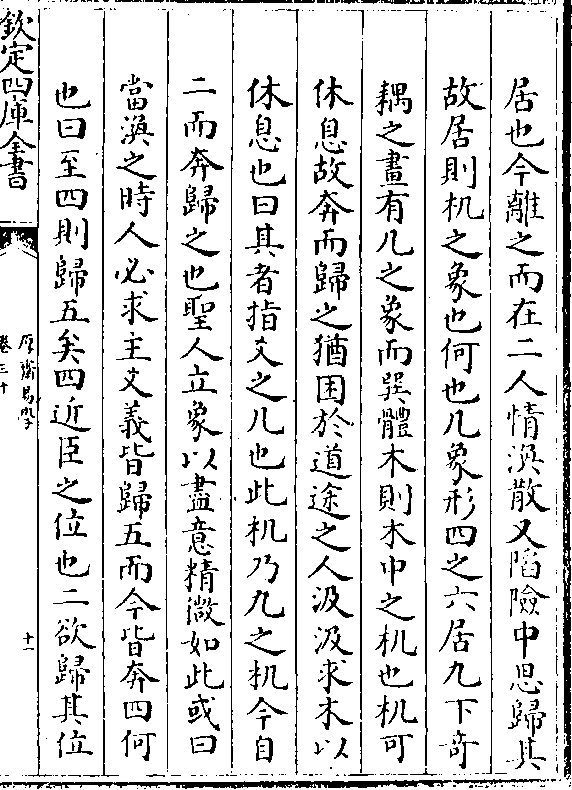 居也今離之而在二人情渙散又陷險中思歸其
故居則机之象也何也几象形四之六居九下奇
耦之畫有几之象而巽體木則木巾之机也机可
休息故奔而歸之猶困於道途之人汲汲求木以
休息也曰其者指爻之几也此机乃九之机今自
二而奔歸之也聖人立象以盡意精微如此或曰
當渙之時人必求主爻義皆歸五而今皆奔四何
也曰至四則歸五矣四近臣之位也二欲歸其位
欽定四庫全書
厚齋易學
卷三十
十一